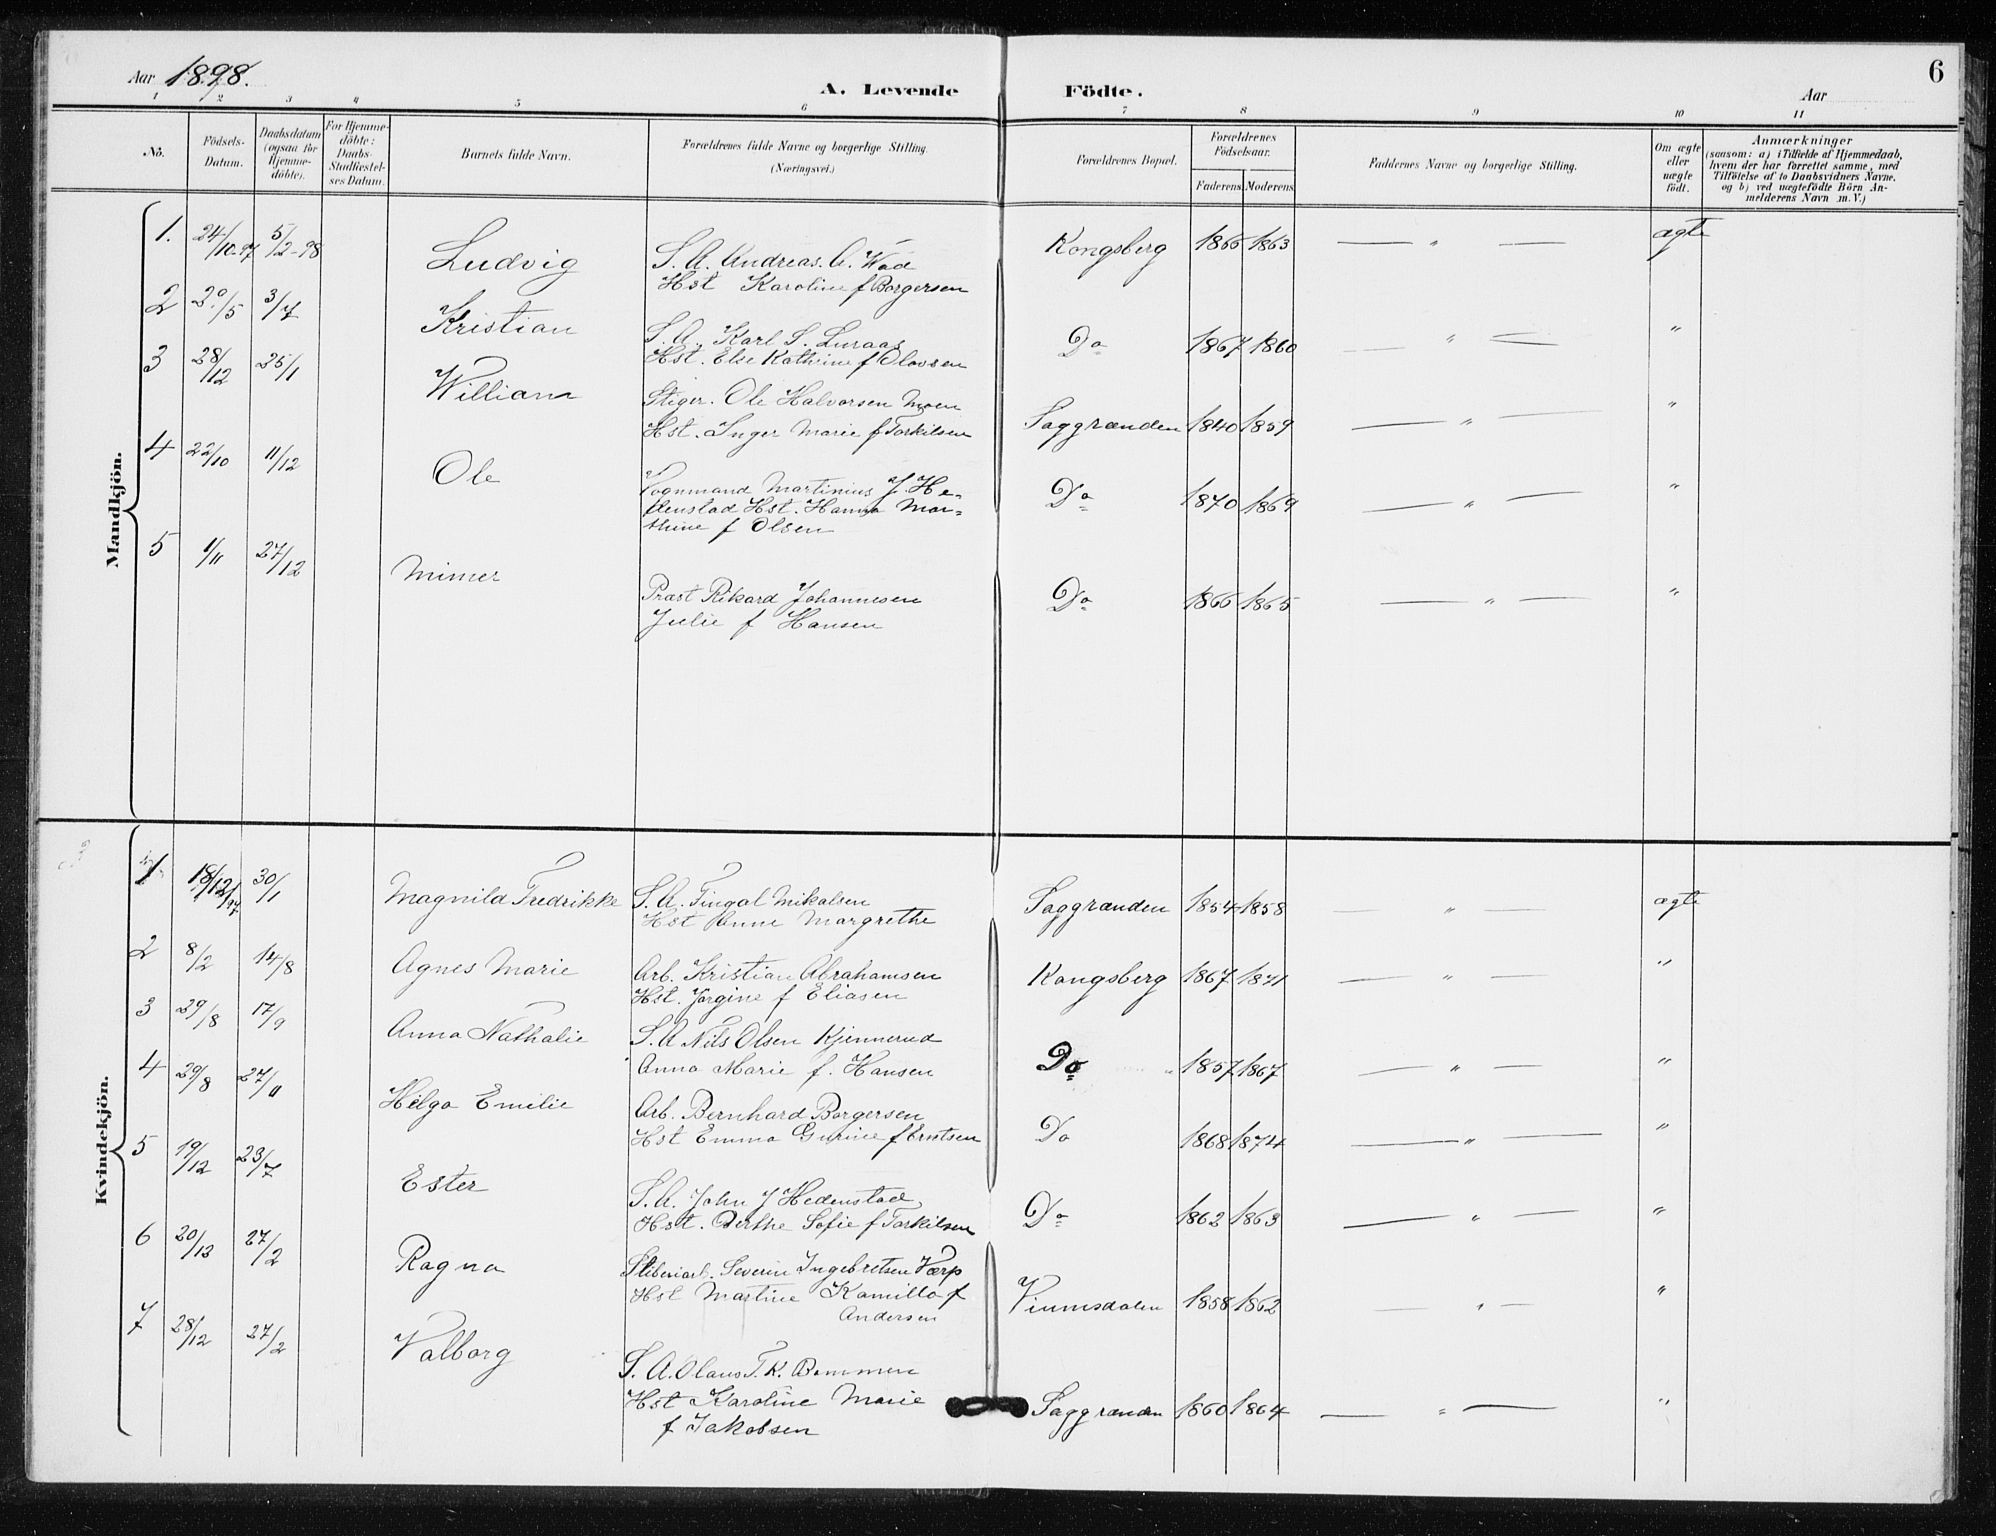 Aar 1898.
A. Levende Födte.
Aar
6
1 2 3 4 5 6 7 8 9 10 11
No. Födsels-Datum. Daabsdatum (ogsaa for Hjemme-döbte). For Hjemme-döbte: Daabs-Stadfæstel-ses Datum. Barnets fulde Navn. Forældrenes fulde Navne og borgerlige Stilling. (Næringsvei.) Forældrenes Bopæl. Forældrenes Födselsaar. Faderens Moderens Faddernes Navne og borgerlige Stilling. Om ægte eller uægte födt. Anmærkninger (saasom: a) i Tilfælde af Hjemmedaab, hvem der har forrettet samme, med Tilföielse af to Daabsvidners Navne, og b) ved uægtefödte Börn An-melderens Navn m. V.)
Mandkjön.
1. 24/10-97 5/2-98 Ludvig S. A. Andreas. A. Wad Kongsberg 1866 1863 — " — ægte
Hst Karoline f Borgersen
2 20/5 3/7 Kristian S. A. Karl S. Luraas Do 1867 1860 — " — "
Hst. Else Kathrine f Olavsen
3 28/12 25/1 William Stiger. Ole Halvorsen Moen Saggrænden 1840 1859 — " — "
Hst. Inger Marie f Torkilsen
4 22/10 11/12 Ole Vognmand Martinius J. He- Do 1870 1869 — " — "
denstad Hst. Hanna Mar-
thine f Olsen
5 1/11 27/12 Mimer Præst Rikard Johannesen Do 1866 1865 — " — "
Julie f Hansen
Kvindekjön.
1 18/12/97 30/1 Magnild Fredrikke S. A. Fingal Mikalsen Saggrænden 1854 1858 — " — ægte
Hst Anne Margrethe
2 8/2 14/8 Agnes Marie Arb. Kristian Abrahamsen Kongsberg 1867 1871 — " — "
Hst. Jørgine f Eliasen
3 29/8 17/9 Anna Nathalie S. A Nils Olsen Kjennerud Do 1857 1867 — " — "
Anna Marie f. Hansen
4 29/8 27/11 Helga Emilie Arb. Bernhard Borgersen Do 1868 1874 — " — "
Hst Emma Gurine f Erntsen
5 19/12 23/7 Ester S. A. John J Hedenstad Do 1862 1863 — " — "
Hst. Berthe Sofie f Torkilsen
6 20/12 27/2 Ragna Sliberiarb. Severin Ingebretsen Værp Vinmsdalen 1858 1862 — " — "
Hst Martine Kamilla f
Andersen
7 28/12 27/2 Valborg S. A. Olaus T. K. Bommen
Hst Karoline Marie Saggrænden 1860 1864 — " — "
f Jakobsen